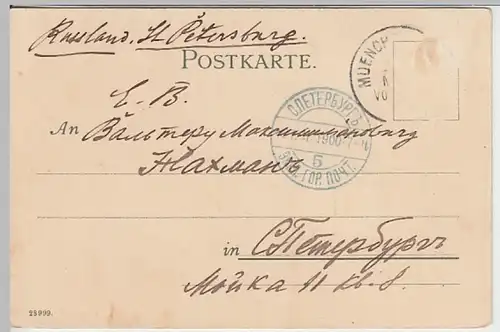 Russland. St Petersburg.
POSTKARTE.
MUENCH
VO
Е. В.
С.ПЕТЕРБУРГЪ
1900
5
ГОР. ПОЧТ.
An Вальтеру Максимилиановичу
Нахманъ
in С.Петербургъ
Мойка 11 кв. 8.
28999.